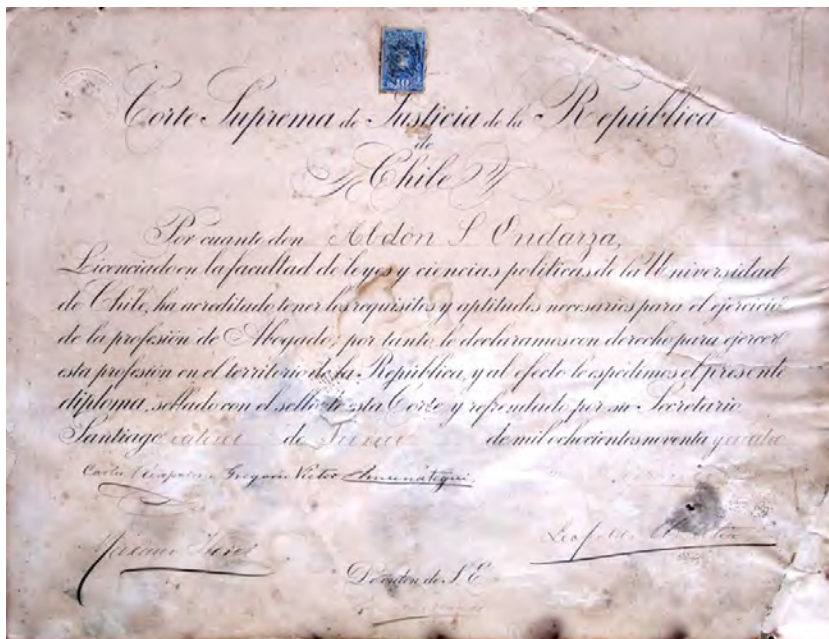 10
Corte Suprema de Justicia de la República
de
Chile
Por cuanto don Abdón S Ondarza,
Licenciado en la facultad de leyes y ciencias políticas de la Universidad
de Chile, ha acreditado tener los requisitos y aptitudes necesarios para el ejercicio
de la profesión de Abogado; por tanto, le declaramos con derecho para ejercer
esta profesión en el territorio de la República, y al efecto le espedimos el presente
diploma, sellado con el sello de esta Corte y refrendado por su Secretario
Santiago catorce de de mil ochocientos noventa y cuatro
Carlos Gregorio Victor Amunátegui
Leopoldo
De orden de S. E.